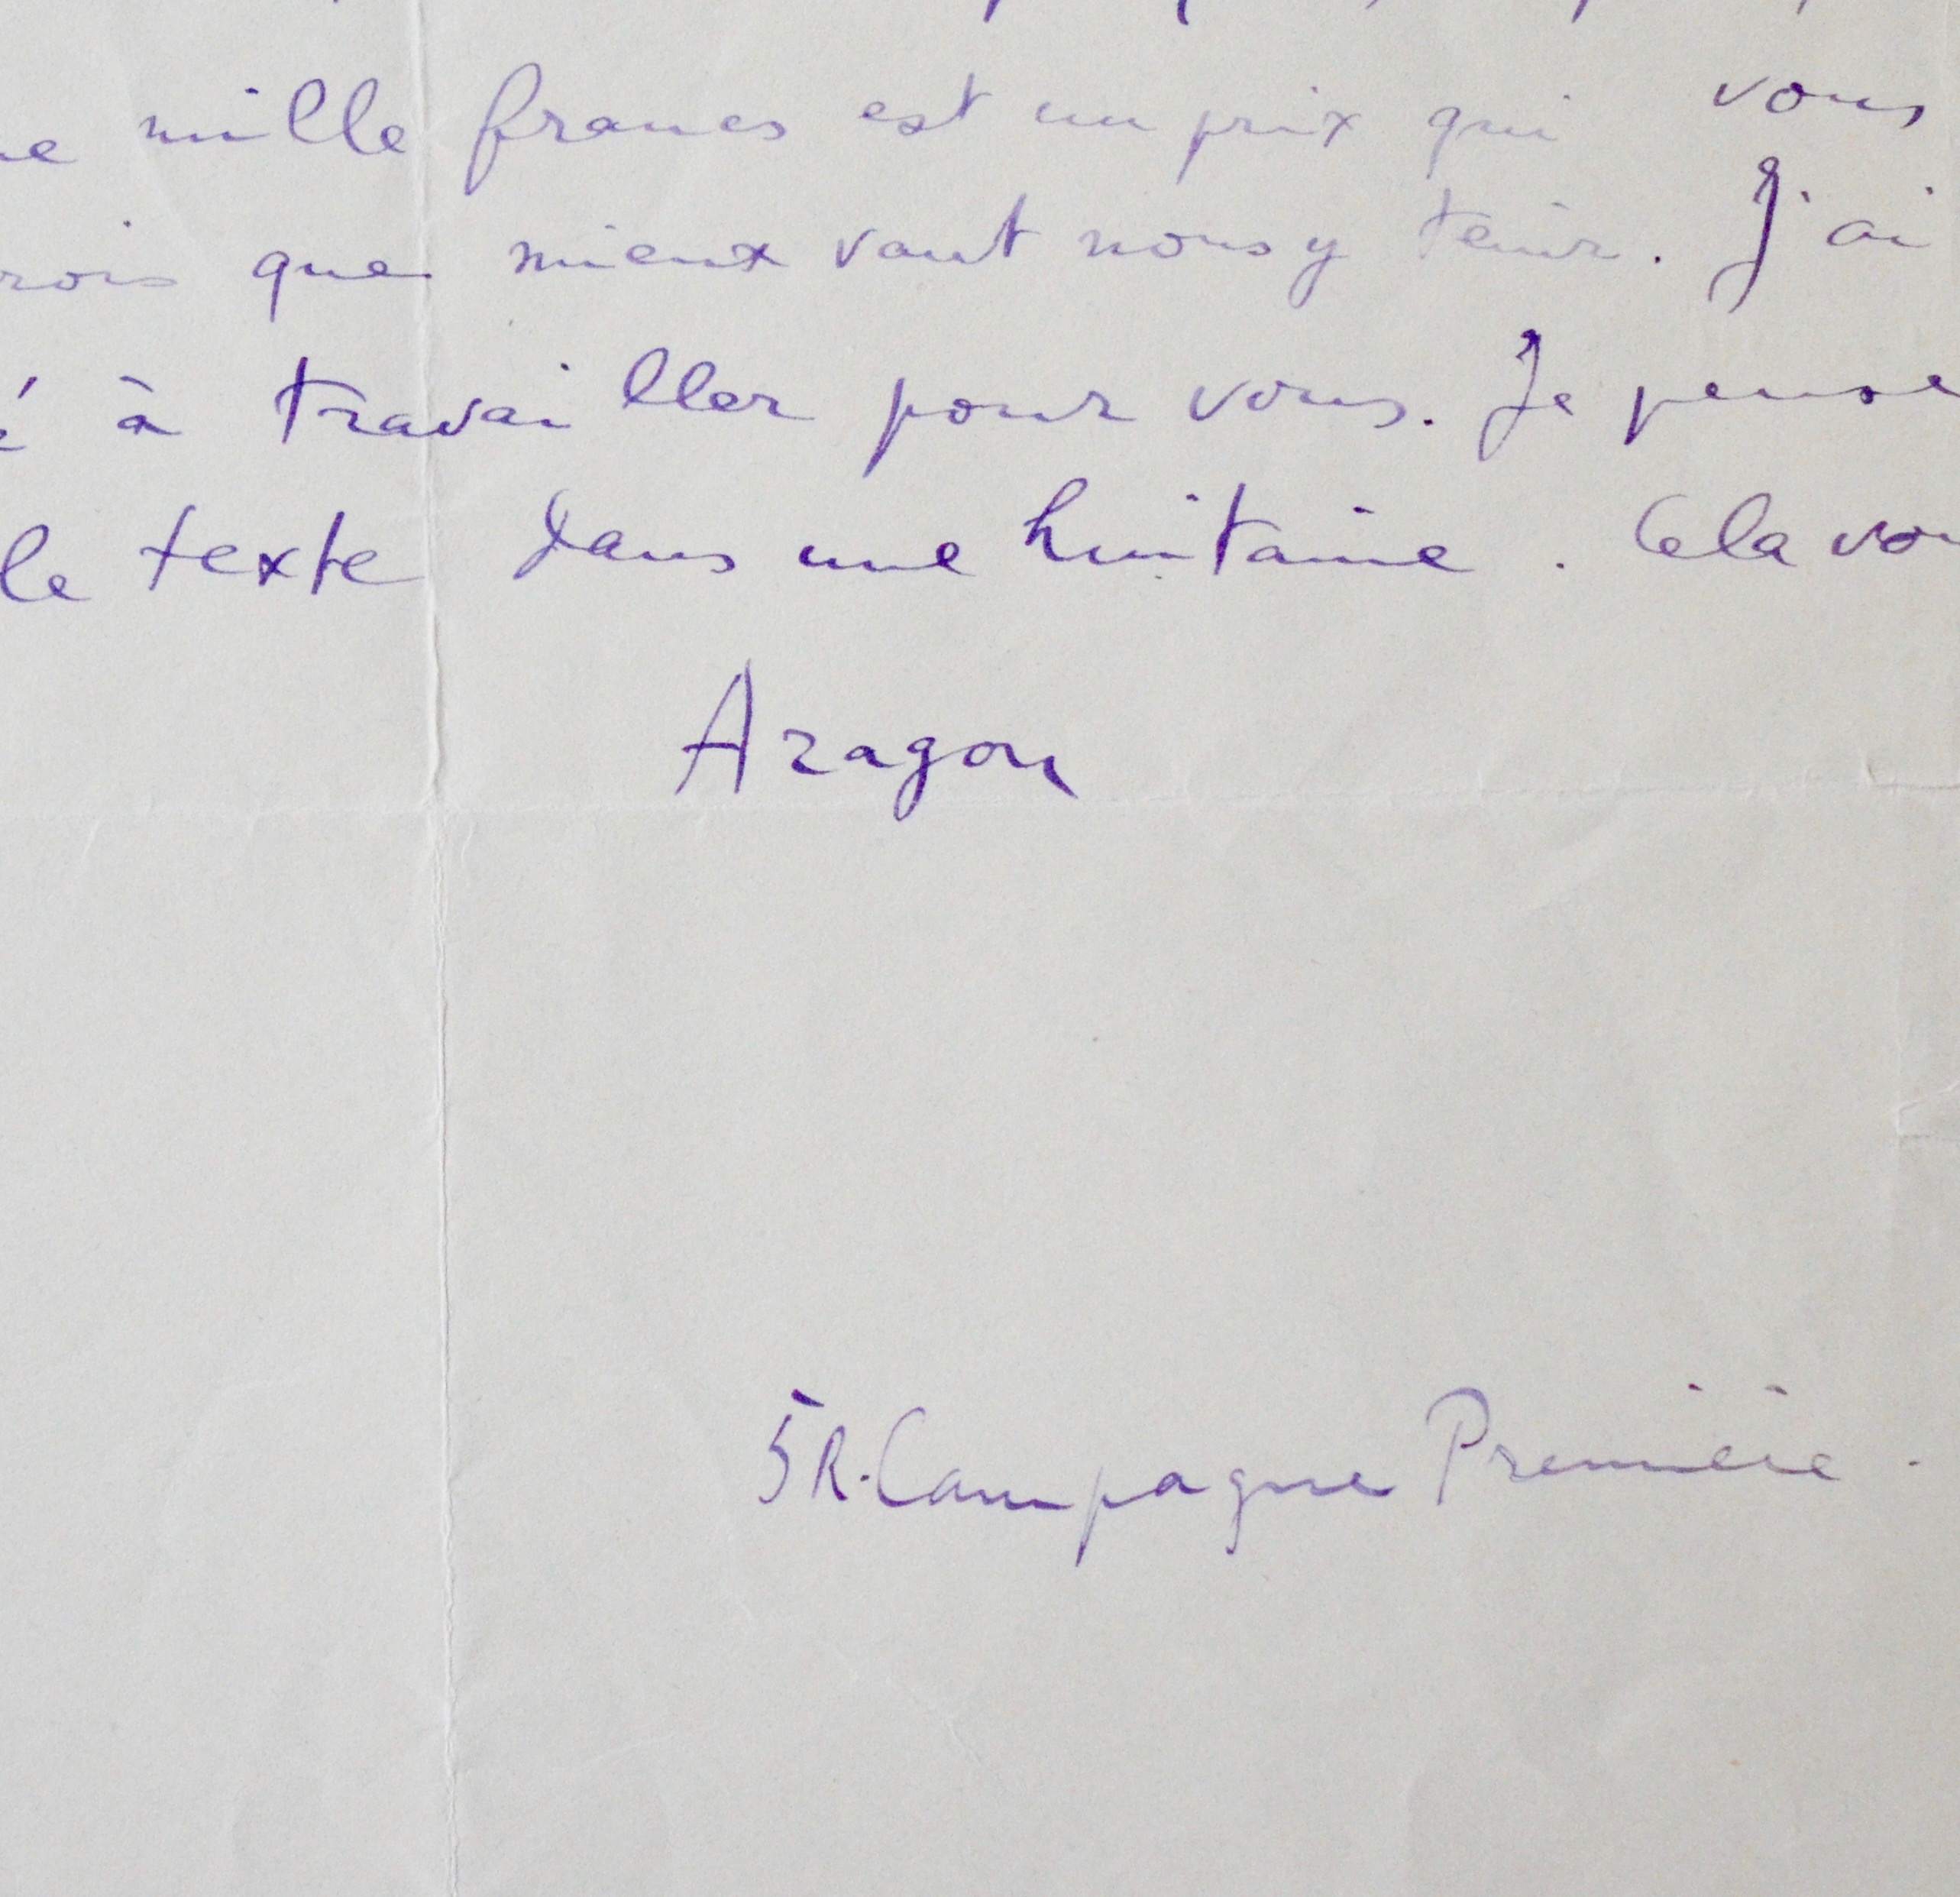 mille francs est un prix qui vous
rois que mieux vaut nous y tenir. J'ai
é à travailler pour vous. Je pense
le texte dans une huitaine. Cela vou
Aragon
5 R. Campagne Première.